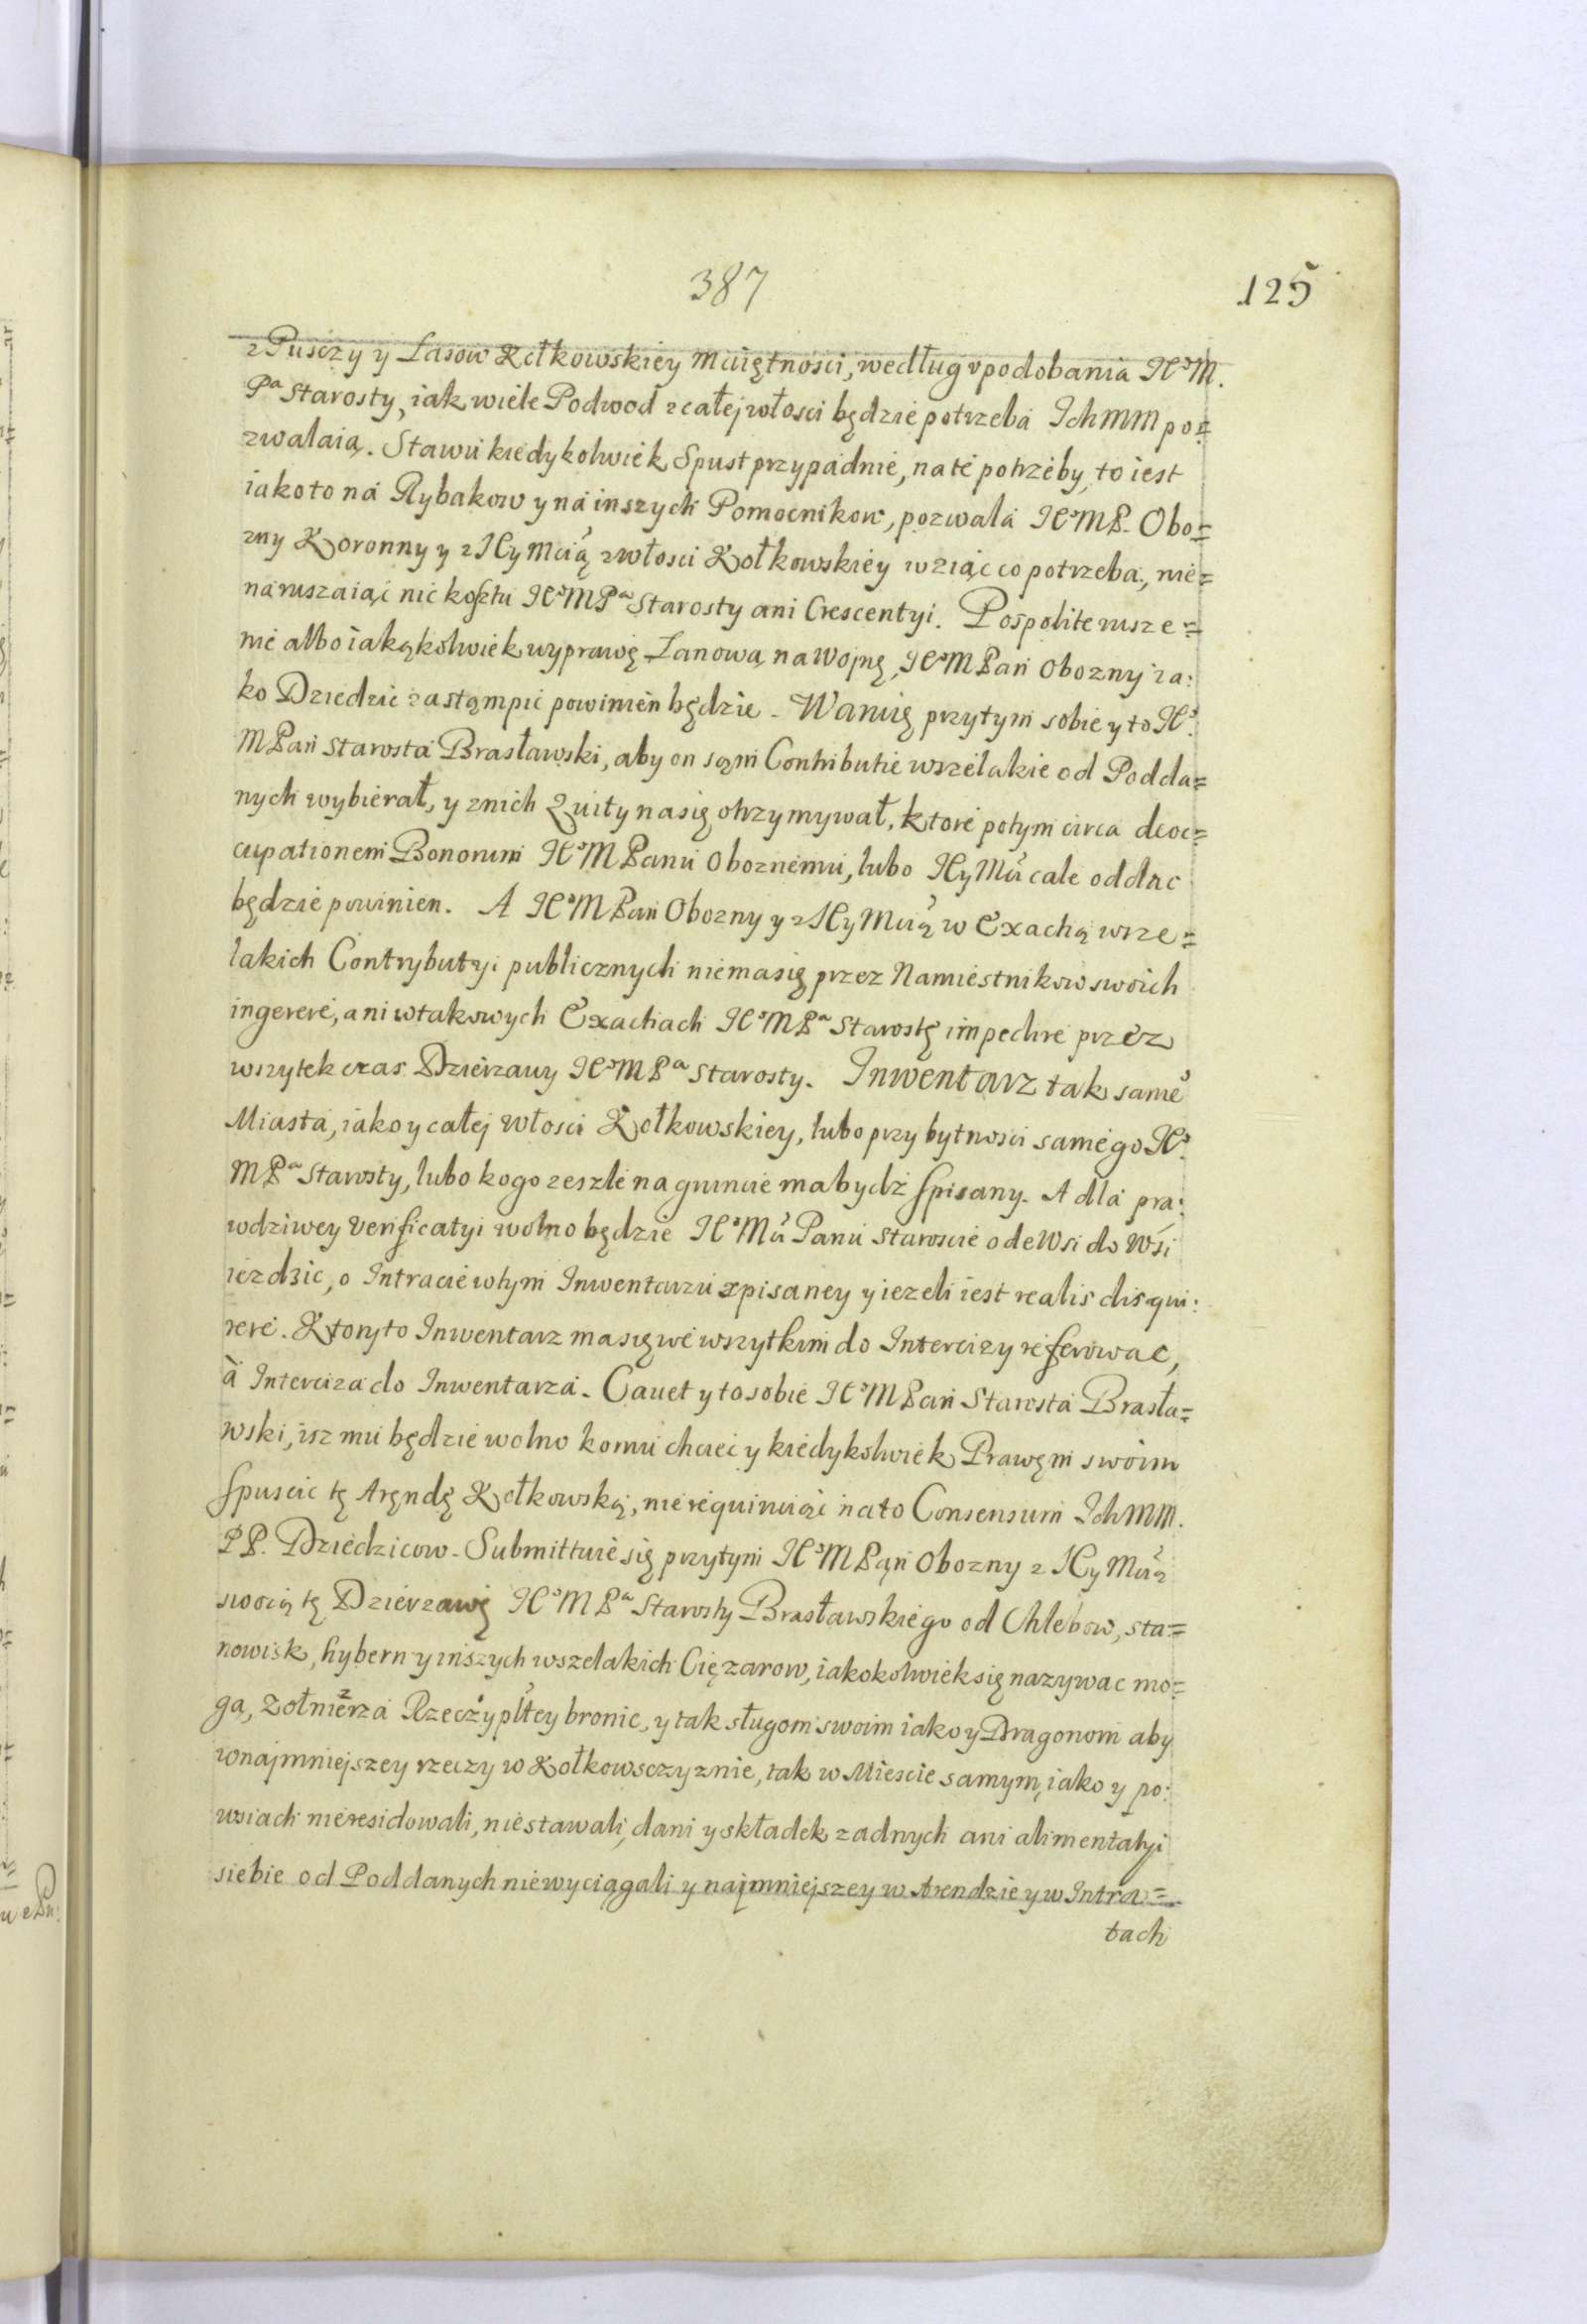 387
125
z Pusczy y Lasow Kołkowskiey Maiętnosci, według vpodobania JE°M.
Pa Starosty, iak wiele Podwod z całej włosci będzie potrzeba Ich MM po=
zwalaią. Stawu kiedykolwiek Spust przypadnie, na te potrzeby, to iest
iako to na Rybakow y na inszych Pomocnikow, pozwala JE°MP. Obo=
zny Koronny y z JEy Mcią z włosci Kołkowskiey wziąc co potrzeba, nie=
naruszaiąc nic kosztu JE°MPa Starosty ani Crescentyi. Pospolite rusze=
nie albo iakąkolwiek wyprawę Łanową na Wojnę, JE°M Pan Obozny ia:
ko Dziedzic zastąmpic powinien będzie. Waruię przytym sobie y to JE°
M Pan Starosta Brasławski, aby on sąm Contributie wszelakie od Podda=
nych wybierał, y z nich Quity na się otrzymywał, ktore potym circa deoc=
cupationem Bonorum JE°M Panu Oboznemu, lubo JEyMci cale oddac
będzie powinien. A JE°M Pan Obozny y z JEy Mcią w Exactią wsze=
lakich Contrybutyi publicznych niema się przez Namiestnikow swoich
ingerere, ani w takowych Exactiach JE°MPa Starostę impedire przez
wszytek czas Dzierzawy JE°MPa Starosty. Inwentarz tak same°
Miasta, iako y całej Włosci Kołkowskiey, lubo przy bytnosci samego JE°
MPa Starosty, lubo kogo zeszle na gruncie ma bydz spisany. A dla pra:
wdziwey Verificatyi wolno będzie JE°Mu Panu Staroscie ode Wsi do Wsi
iezdzic, o Intracie w tym Inwentarzu spisaney y iezeli iest realis disqui:
rere. Ktory to Inwentarz ma się we wszytkim do Intercizy referowac,
à Interciza do Inwentarza. Cauet y to sobie JE°M Pan Starosta Brasła=
wski, isz mu będzie wolno komu chciec y kiedykolwiek Prawęm swoim
spuscic tę Aręndę Kołkowską, nie requiruiąc na to Consensum Ich MM.
PP. Dziedzicow. Submittuie się przytym JE°M Pąn Obozny z JEy Mcią
swoią tę Dzierzawę JE°MPa Starosty Brasławskiego od Chlebow, sta=
nowisk, hybern y inszych wszelakich Cięzarow, iakokolwiek się nazywac mo=
gą, Zołnierza Rzeczyplltey bronic, y tak sługom swoim iako y Dragonom aby
w najmniejszey rzeczy w Kołkowsczyznie, tak w Miescie samym, iako y po:
wsiach nieresidowali, niestawali, dani y składek zadnych ani alimentatyi
siebie od Poddanych niewyciągali y najmniejszey w Arendzie y w Intra=
tach